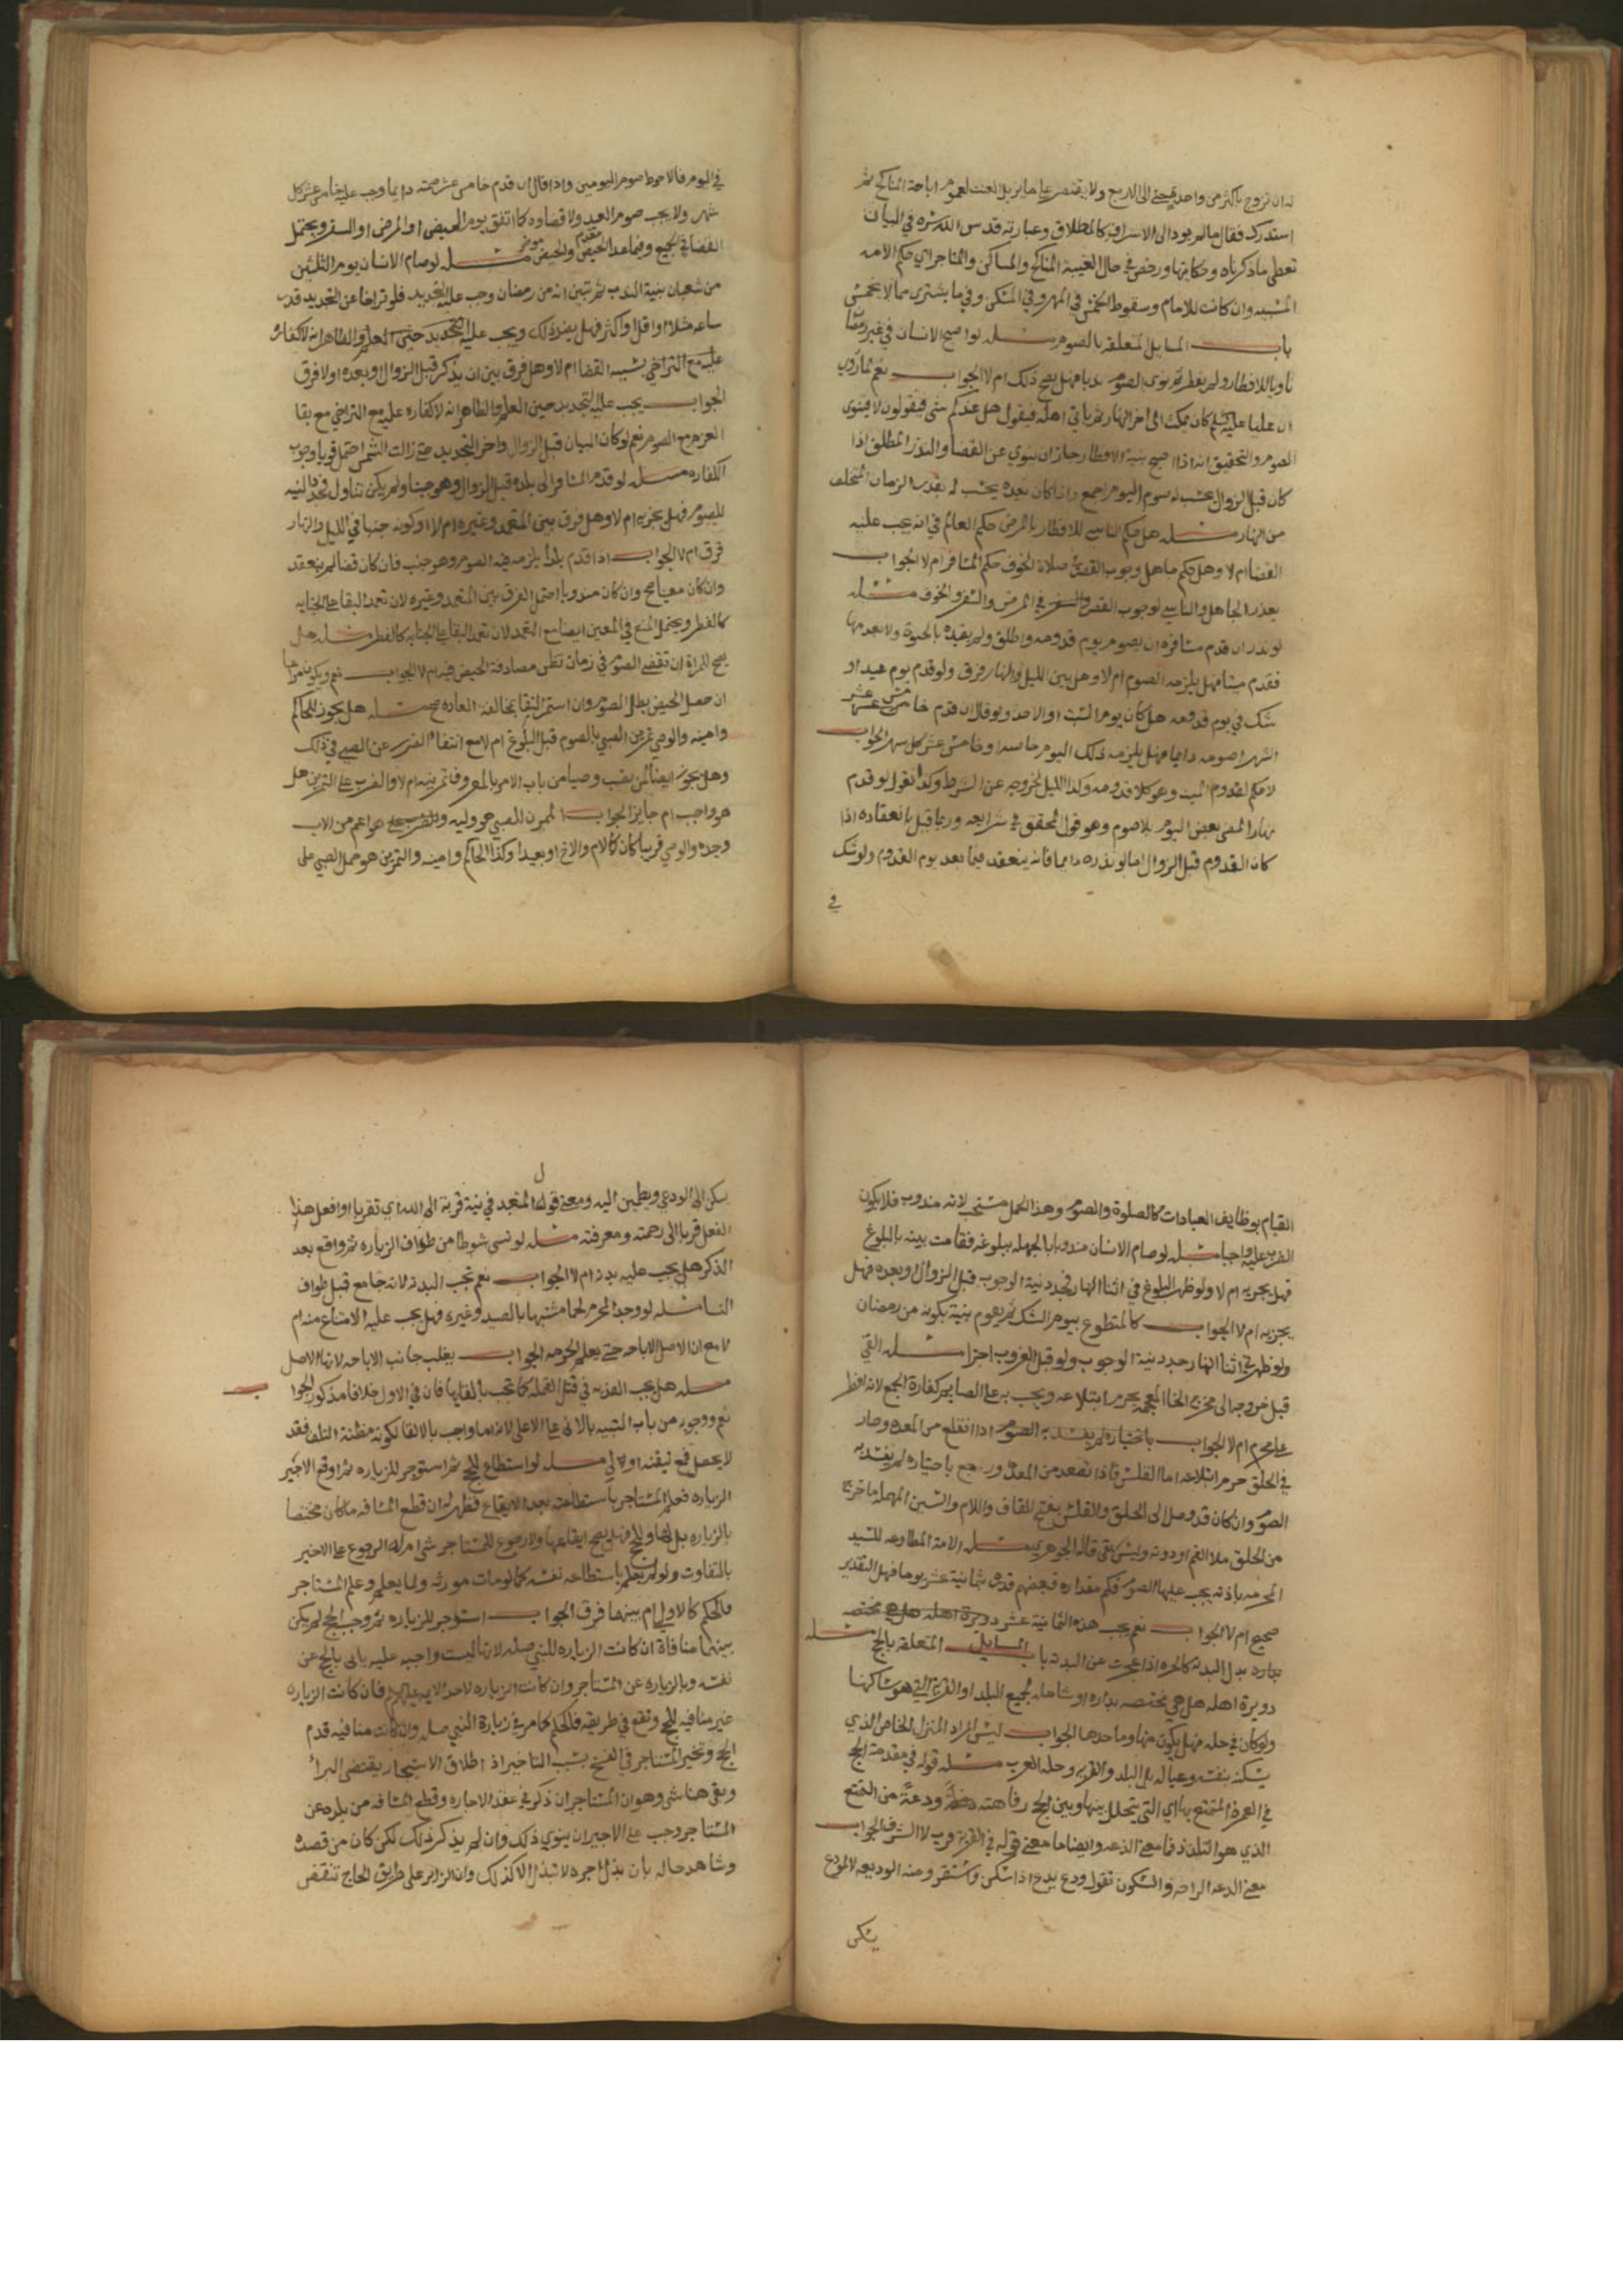 له ان تزوج باكثر من واحدة حتى الى الاربع ولا يقتصر على ما يزيل العنت لعموم اباحة المناكح ثم
استدرك فقال ما لم يود الى الاسراف كالمطلاق وعبارته قدس الله سره في البيان
تعطى ماذكرناه وحكايتها ورخص في حال الغيبة المناكح والمساكن والمتاجر اي حكم الامه
المسبيه وان كانت للامام وسقوط الخمس في المهر وفي المسكن وفي ما يشترى ممالا يخمس
باب المسايل المتعلقه بالصوم مسله لو اصبح الانسان في غير رمضا
ناويا للافطار ولم يفطر ثم نوى الصوم ندبا فهل يصح ذلك ام لا الجواب نعم لما روي
ان عليا عليه السلم كان يمكث الى اخر النهار ثم ياتي اهله فيقول هل عندكم شى فيقولون لا فينوى
الصوم والتحقيق انه اذا اصبح بنية الافطار جاز ان ينوي عن القضا والنذر المطلق اذا
كان قبل الزوال يحتسب له صوم اليوم اجمع واذا كان بعده يحتسب له بقدر الزمان المتخلف
من النهار مسله هل حكم الناسي للافطار بالمرض حكم العالم في انه يجب عليه
القضا ام لا وهل حكم جاهل وجوب القصر في صلاة الخوف حكم المسافر ام لا الجواب
يعذر الجاهل والناسي لوجوب القصر في المرض والسفر والخوف مسله
لو نذر ان قدم مسافره ان يصوم يوم قدومه واطلق ولم يقيده بالحيوة ولا بعدمها
فقدم ميتا فهل يلزمه الصوم ام لا وهل بين الليل والنهار فرق ولو قدم يوم عيد او
شك في يوم قدومه هل كان يوم السبت او الاحد ولو قال ان قدم خامس عشر
الشهر اصومه دايما فهل يلزمه ذلك اليوم خاصه او خامس عشر كل شهر الجواب
لا حكم لقدوم الميت وهو كلا قدومه وكذا الليل لخروجه عن الشرط وكذا نقول لو قدم
نهارا لمضى بعض اليوم بلا صوم وهو قول المحقق في شرايعه وربما قيل بانعقاده اذا
كان القدوم قبل الزوال اما لو نذره دايما فانه ينعقد فيما بعد يوم القدوم ولو شك
في
في اليوم فالاحوط صوم اليومين واذا قال ان قدم خامس عشر صمته دايما وجب عليه خامس عشر كل
شهر ولا يجب صوم العيد ولا قضاوه كما اتفق يوم الحيض او المرض او السفر ويحتمل
القضا في الجميع وفيما عدا الحيض والحيض مسله لو صام الانسان يوم الثلثين
من شعبان بنية الندب ثم تبين انه من رمضان وجب عليه التجديد فلو تراخا عن التجديد قدر
ساعه مثلا او اقل او اكثر فهل يضر ذلك ويجب عليه التجديد حتى العلم والظاهر انه لا كفاره
عليه مع التراخي بنية القضا ام لا وهل فرق بين ان يذكر قبل الزوال او بعده او لا فرق
الجواب يجب عليه التجديد حين العلم والظاهر انه لا كفاره عليه مع التراخي مع بقا
العزم مع الصوم نعم لو كان البيان قبل الزوال واخر التجديد حتى زالت الشمس احتمل قويا وجوب
الكفاره مسله لو قدم المسافر الى بلده قبل الزوال وهو جنب ولم يكن تناول فجدد النيه
للصوم فهل يجزيه ام لا وهل فرق بين المتعمد وغيره ام لا او كونه جنبا في الليل والنهار
فرق ام لا الجواب اذا قدم بلدا يلزمه فيه الصوم وهو جنب فان كان قضا لم ينعقد
وان كان معينا صح وان كان مندوبا احتمل الفرق بين المتعمد وغيره لان تعمد البقا على الجنابه
كالفطر ويحتمل المنع في المعين ايضا مع التعمد لان تعمد البقا على الجنابه كالفطر مسله هل
يصح للمراة ان تقضي الصوم في زمان تظن مصادفة الحيض فيه ام لا الجواب نعم ويكون مراعا
ان حصل الحيض بطل الصوم وان استمر النقا بخالفة العاده صح مسله هل يجوز للحاكم
وامينه والوصي تمرين الصبي بالصوم قبل البلوغ ام لا مع انتفاء الضرر عن الصبي في ذلك
وهل يجوز ايضا لمن نصب وصيا من باب الامر بالمعروف تمرينه ام لا والضرب على التمرين هل
هو واجب ام جايز الجواب الممرن للصبي هو وليه هو اعم من الاب
وجده والوصي قريبا كان كالام والاخ او بعيدا وكذا الحاكم وامينه والتمرين هو حمل الصبي على
القيام بوظايف العبادات كالصلوة والصوم وهذا الحمل مستحب لانه مندوب فلا يكون
الضرب عليه واجبا مسله لو صام الانسان مندوبا بالجهله ببلوغه فقامت بينه بالبلوغ
فهل يجزيه ام لا ولو ظهر البلوغ في اثنا النهار فجدد نية الوجوب قبل الزوال او بعده فهل
يجزيه ام لا الجواب كالمتطوع بيوم الشك ثم يصوم بنية بكونه من رمضان
ولو ظهر في اثنا النهار جدد نية الوجوب ولو قبل الغروب اجزا مسله القي
قبل خروجه الى مخرج الخا المعجمه يحرم ابتلاعه ويجب به على الصايم كفارة الجمع لانه افطر
على محرم ام لا الجواب باختياره لم يفسد به الصوم اذا انقلع من المعده وصار
في الحلق حرم ابتلاعه اما القلس فاذا تصعد من المعده ورجع باختياره لم يفسد به
الصوم وان كان قد وصل الى الحلق والقلس بفتح القاف واللام والسين المهمله ما خرج
من الحلق ملا الفم او دونه وليس بقي قاله الجوهري مسله الامة المطاوعه للسيد
المحرمه باذنه يجب عليها الصوم فكم مقداره فبعضهم قدره بثمانية عشر يوما فهل التقدير
صحيح ام لا الجواب نعم يجب هذه الثمانية عشر دويرة اهله هل هي مختصه
بداره بدل البدنه كالحره اذا عجزت عن البدنه باب المسايل المتعلقه بالحج مسله
دويرة اهله هل هي مختصه بداره او شامله لجميع البلد او القرية التي هو ساكنها
ولو كان في حله فهل يكون منها وما حدها الجواب ليس المراد المنزل الخاص الذي
يسكنه بنفسه وعياله بل البلد والقريه وحله العرب مسله قوله في مقدمة الحج
في العمرة المتمتع بها اي التي يتحلل بينها وبين الحج رفاهته ودعة من التمتع
الذي هو التلذذ فما معنى الدعه وايضا ما معنى قوله في القربة قرب لا الشرف الجواب
معنى الدعه الراحه والسكون تقول ودع يدع اذا سكن واستقر ومنه الوديعه لان المودع
يسكن
ل
يسكن الى الودعي ويطمين اليه ومعنى قوله المتعبد في نية قربة الى الله اي تقربا او افعل هذا
الفعل قربا الى رحمته ومعرفته مسله لو نسي شوطا من طواف الزياره ثم واقع بعد
الذكر هل يجب عليه بدنه ام لا الجواب نعم تجب البدنه لانه جامع قبل طواف
النسا مسله لو وجد المحرم لحما مشتبها بالصيد وغيره فهل يجب عليه الامتناع منه ام
لا مع ان الاصل الاباحه حتى يعلم الحرمه الجواب يغلب جانب الاباحه لانها الاصل
مسله هل يجب الفديه في قتل القمله كما تجب بالقايها فان في الاول خلافا مذكور الجوا ب
نعم ووجوبه من باب التنبيه بالادنى على الاعلى لانه اما واجب بالالقا لكونه مظنة التلف فقد
لا يحصل فمع تيقنه اولى مسله لو استطاع للحج ثم استوجر للزياره ثم اوقع الاجير
الزياره فعلم المستاجر باستطاعته بعد الايقاع فظهر له ان قطع المسافه ما كان مختصا
بالزياره بل لها وللحج فهل يصح ايقاعها ولا رجوع للمستاجر شى ام له الرجوع على الاجير
بالتفاوت ولو لم يعلم باستطاعه نفسه كما لو مات مورثه ولما يعلم وعلم المستاجر
فالحكم كالاولى ام بينهما فرق الجواب استوجر للزياره ثم وجب الحج لم يكن
بينهما منافاة ان كانت الزياره للنبي صله لانها ليست واجبه عليه ياتى بالحج عن
نفسه وبالزياره عن المستاجر وان كانت الزياره لاحد الايمه عليهم السلم فان كانت الزياره
غير منافيه للحج وتقع في طريقه فالحكم كما مر في زيارة النبي صله وان كانت منافيه قدم
الحج وتخير المستاجر في الفسخ بسبب التاخير اذ اطلاق الاستيجار يقتضى البرا
وبقى هنا شى وهو ان المستاجر ان ذكر في عقد الاجاره وقطع المسافه من بلده عن
المستاجر وجب على الاجير ان ينوي ذلك وان لم يذكر ذلك لكن كان من قصده
وشاهد حاله بان بذل اجره لا تبذل الا كذلك وان الزاير على طريق الحاج تنقض